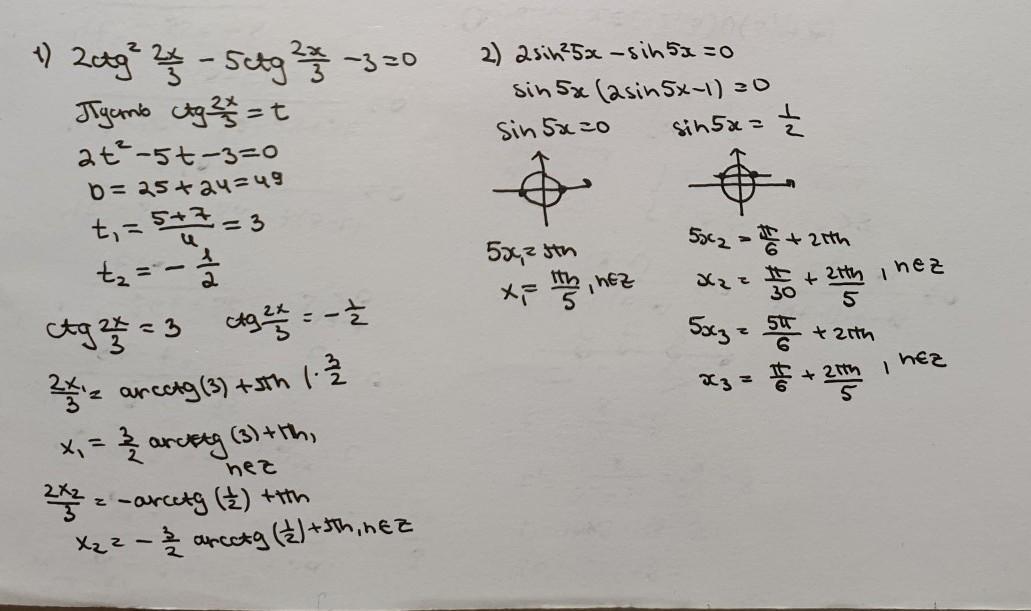 1) 2ctg² 2x/3 - 5ctg 2x/3 - 3 = 0
Пусть ctg 2x/3 = t
2t² - 5t - 3 = 0
D = 25 + 24 = 49
t₁ = (5+7)/4 = 3
t₂ = - 1/2
ctg 2x/3 = 3 ctg 2x/3 = - 1/2
2x₁/3 = arcctg(3) + πn | · 3/2
x₁ = 3/2 arcctg(3) + πn,
n∈Z
2x₂/3 = -arcctg(1/2) + πn
x₂ = - 3/2 arcctg(1/2) + πn, n∈Z
2) 2sin²5x - sin5x = 0
sin5x(2sin5x-1) = 0
sin5x = 0 sin5x = 1/2
5x₁ = πn
x₁ = πn/5, n∈Z
5x₂ = π/6 + 2πn
x₂ = π/30 + 2πn/5, n∈Z
5x₃ = 5π/6 + 2πn
x₃ = π/6 + 2πn/5, n∈Z